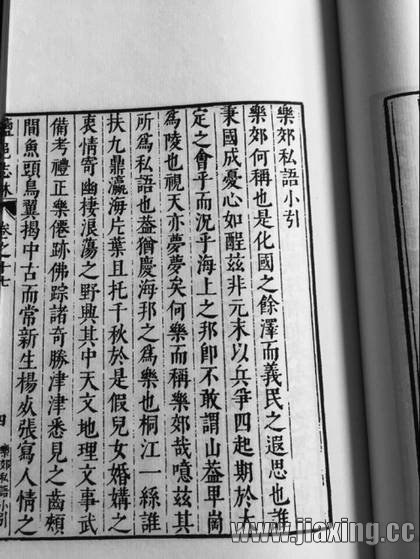 樂郊私語小引
樂郊何稱也是化國之餘澤而義民之遐思也誰
秉國成憂心如酲茲非元末以兵爭四起期於大
定之會乎而況乎海上之邦即不敢謂山益卑崗
為陵也視天亦夢夢矣何樂而稱樂郊哉噫茲其
所為私語也蓋猶慶海邦之為樂也桐江一絲誰
扶九鼎瀛海片葉且托千秋於是假兒女婚媾之
衷情寄幽棲浪蕩之野興其中天文地理文事武
備考禮正樂僊跡佛踪諸奇勝津津悉見之齒頰
間魚頭鳥翼揭中古而常新生楊
張寫人情之
鹽邑志林
卷之十七
四
樂郊私語小引
www.jiaxing.cc